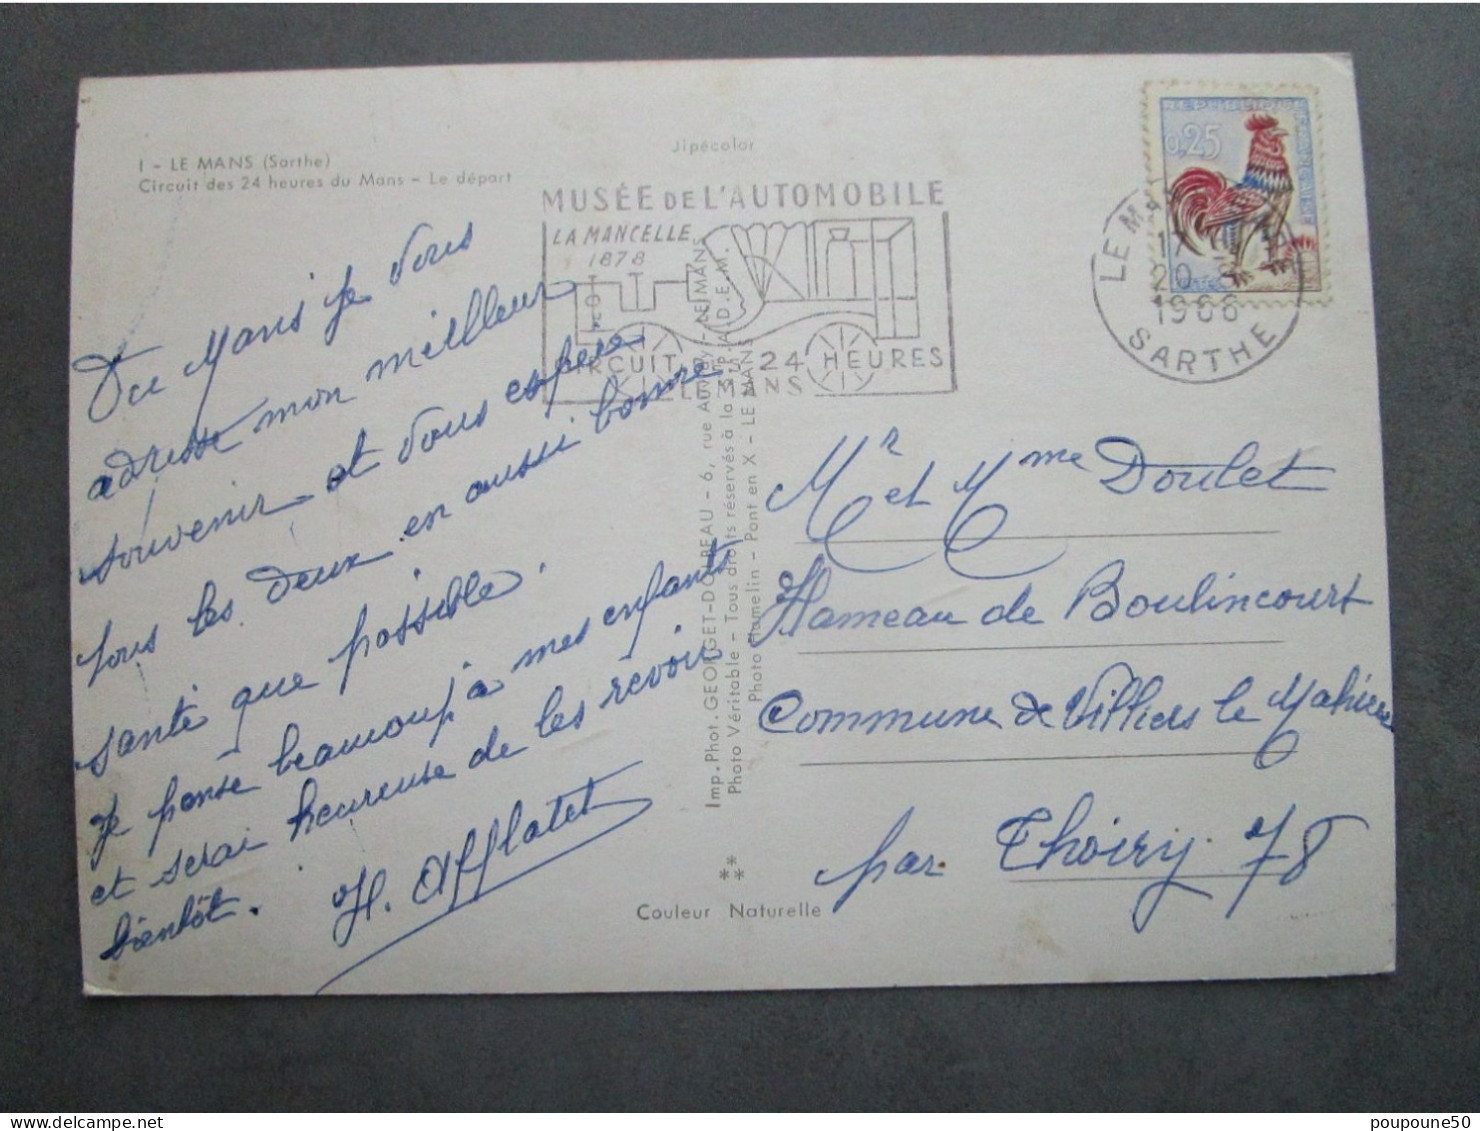 I - LE MANS (Sarthe)
Circuit des 24 heures du Mans - Le départ
Jipécolor
MUSÉE DE L'AUTOMOBILE
LA MANCELLE
1878
CIRCUIT 24 HEURES
LE MANS
REPUBLIQUE FRANCAISE
0,25
LE MANS
17
20
1966
SARTHE
Du Mans je vous
adresse mon meilleur
souvenir et vous espère
tous les deux en aussi bonne
santé que possible.
Je pense beaucoup à mes enfants
et serai heureuse de les revoir
bientôt. H. Afflatet
Imp. Phot. GEORGET-DOREAU - 6, rue Auvray - LE MANS
Photo Véritable - Tous droits réservés à la S.P.A.D.E.M.
Photo Hamelin - Pont en X - LE MANS
Couleur Naturelle
Mr et Mme Doulet
Hameau de Boulincourt
Commune de Villiers le Mahieu
par Thoiry 78
poupoune50